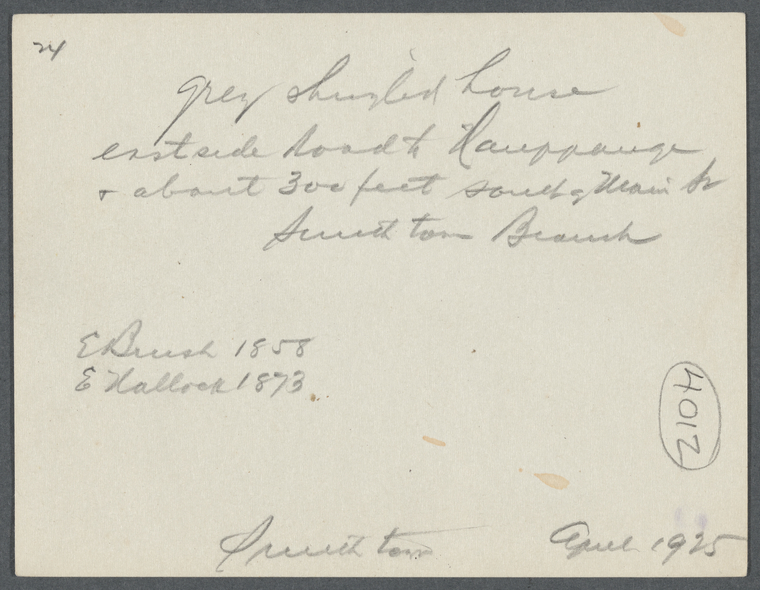 24
grey shingled house
east side road to Hauppauge
+ about 300 feet south of Main St
Smithtown Branch
E Brush 1858
E Hallock 1873
210M
Smithtown April 1925